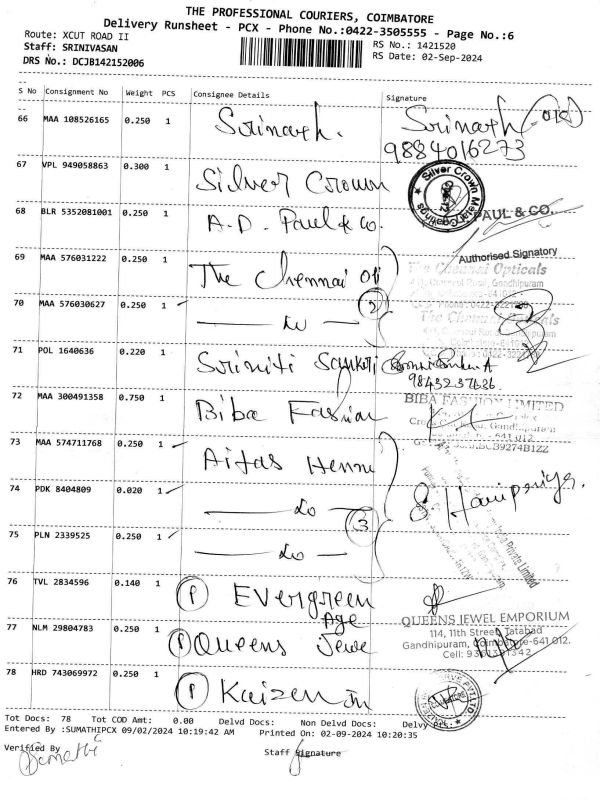 THE PROFESSIONAL COURIERS, COIMBATORE
Delivery Runsheet - PCX - Phone No.:0422-3505555 - Page No.:6
Route: XCUT ROAD II
RS No.: 1421520
Staff: SRINIVASAN
RS Date: 02-Sep-2024
DRS No.: DCJB142152006
S No Consignment No Weight PCS Consignee Details Signature
66 MAA 108526165 0.250 1 Srinath. Srinath
9884016273
67 VPL 949058863 0.300 1 Silver Crown
Silver Crown
68 BLR 5352081001 0.250 1 A.D. Paul & Co. PAUL & CO.
Authorised Signatory
69 MAA 576031222 0.250 1 The Chennai Opt
The Chennai Opticals
70 MAA 576030627 0.250 1 — do — 2
The Chennai Opticals
71 POL 1640636 0.220 1 Sriniti
72 MAA 300491358 0.750 1 Biba Fashion BIBA FASHION LIMITED
73 MAA 574711768 0.250 1
74 PDK 8404809 0.020 1 — do — 3
75 PLN 2339525 0.250 1 — do —
Private Limited
76 TVL 2834596 0.140 1 P Evergreen
Age
77 NLM 29804783 0.250 1 P Queens Jewe
QUEENS JEWEL EMPORIUM
114, 11th Street, Tatabad
Gandhipuram, Coimbatore-641 012.
78 HRD 743069972 0.250 1 P Kaizen
Tot Docs: 78 Tot COD Amt: 0.00 Delvd Docs: Non Delvd Docs: Delvy Pct:
Entered By :SUMATHIPCX 09/02/2024 10:19:42 AM Printed On: 02-09-2024 10:20:35
Verified By
Sumathi
Staff Signature